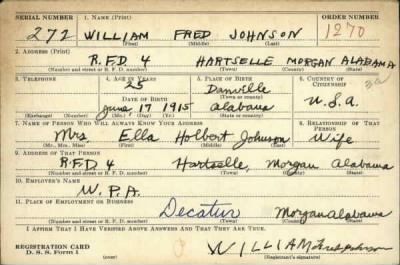 SERIAL NUMBER 1. NAME (Print) ORDER NUMBER
272 WILLIAM FRED JOHNSON 1270
(First) (Middle) (Last)
2. ADDRESS (Print)
R.F.D 4 HARTSELLE MORGAN ALABAMA
(Number and street or R. F. D. number) (Town) (County) (State)
3. TELEPHONE 4. AGE IN YEARS 5. PLACE OF BIRTH 6. COUNTRY OF CITIZENSHIP
25 Danville
DATE OF BIRTH (Town or county)
June 17 1915 Alabama U.S.A.
(Exchange) (Number) (Mo.) (Day) (Yr.) (State or country)
7. NAME OF PERSON WHO WILL ALWAYS KNOW YOUR ADDRESS 8. RELATIONSHIP OF THAT PERSON
Mrs. Ella Holbert Johnson Wife
(Mr., Mrs., Miss) (First) (Middle) (Last)
9. ADDRESS OF THAT PERSON
R.F.D 4 Hartselle, Morgan Alabama
(Number and street or R. F. D. number) (Town) (County) (State)
10. EMPLOYER'S NAME
W.P.A.
11. PLACE OF EMPLOYMENT OR BUSINESS
Decatur Morgan Alabama
(Number and street or R. F. D. number) (Town) (County) (State)
I AFFIRM THAT I HAVE VERIFIED ABOVE ANSWERS AND THAT THEY ARE TRUE.
REGISTRATION CARD
D. S. S. Form 1 WILLIAM Fred Johnson
(Registrant's signature)